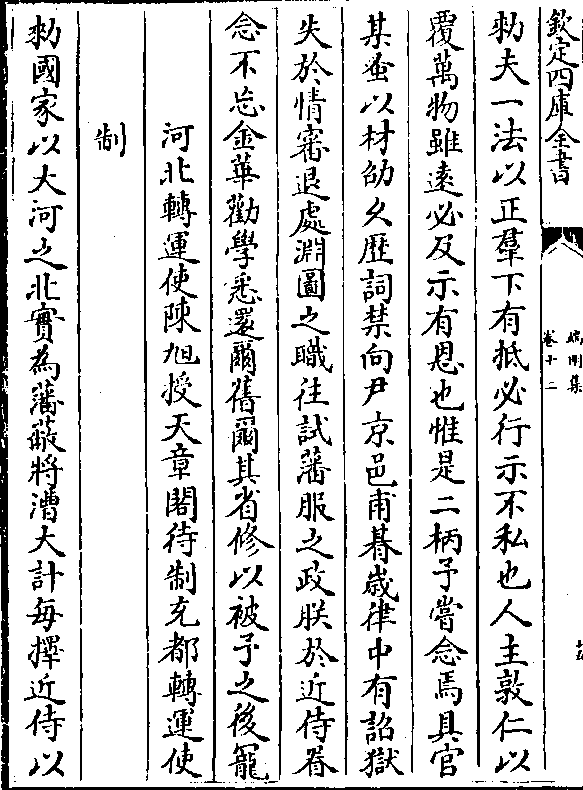 欽定四庫全書
卷十二
勅夫一法以正羣下有抵必行示不私也人主敦仁以
覆萬物雖逺必及示有恩也惟是二柄予嘗念焉具官
某蚤以材劭久歴詞禁向尹京邑甫朞歳律中有詔獄
失於情審退處淵圖之職往試藩服之政朕於近侍眷
念不忘金華勸學悉還爾舊爾其省修以被予之後寵
河北轉運使陳旭授天章閣待制充都轉運使
制
勅國家以大河之北實為藩蔽將漕大計每擇近侍以